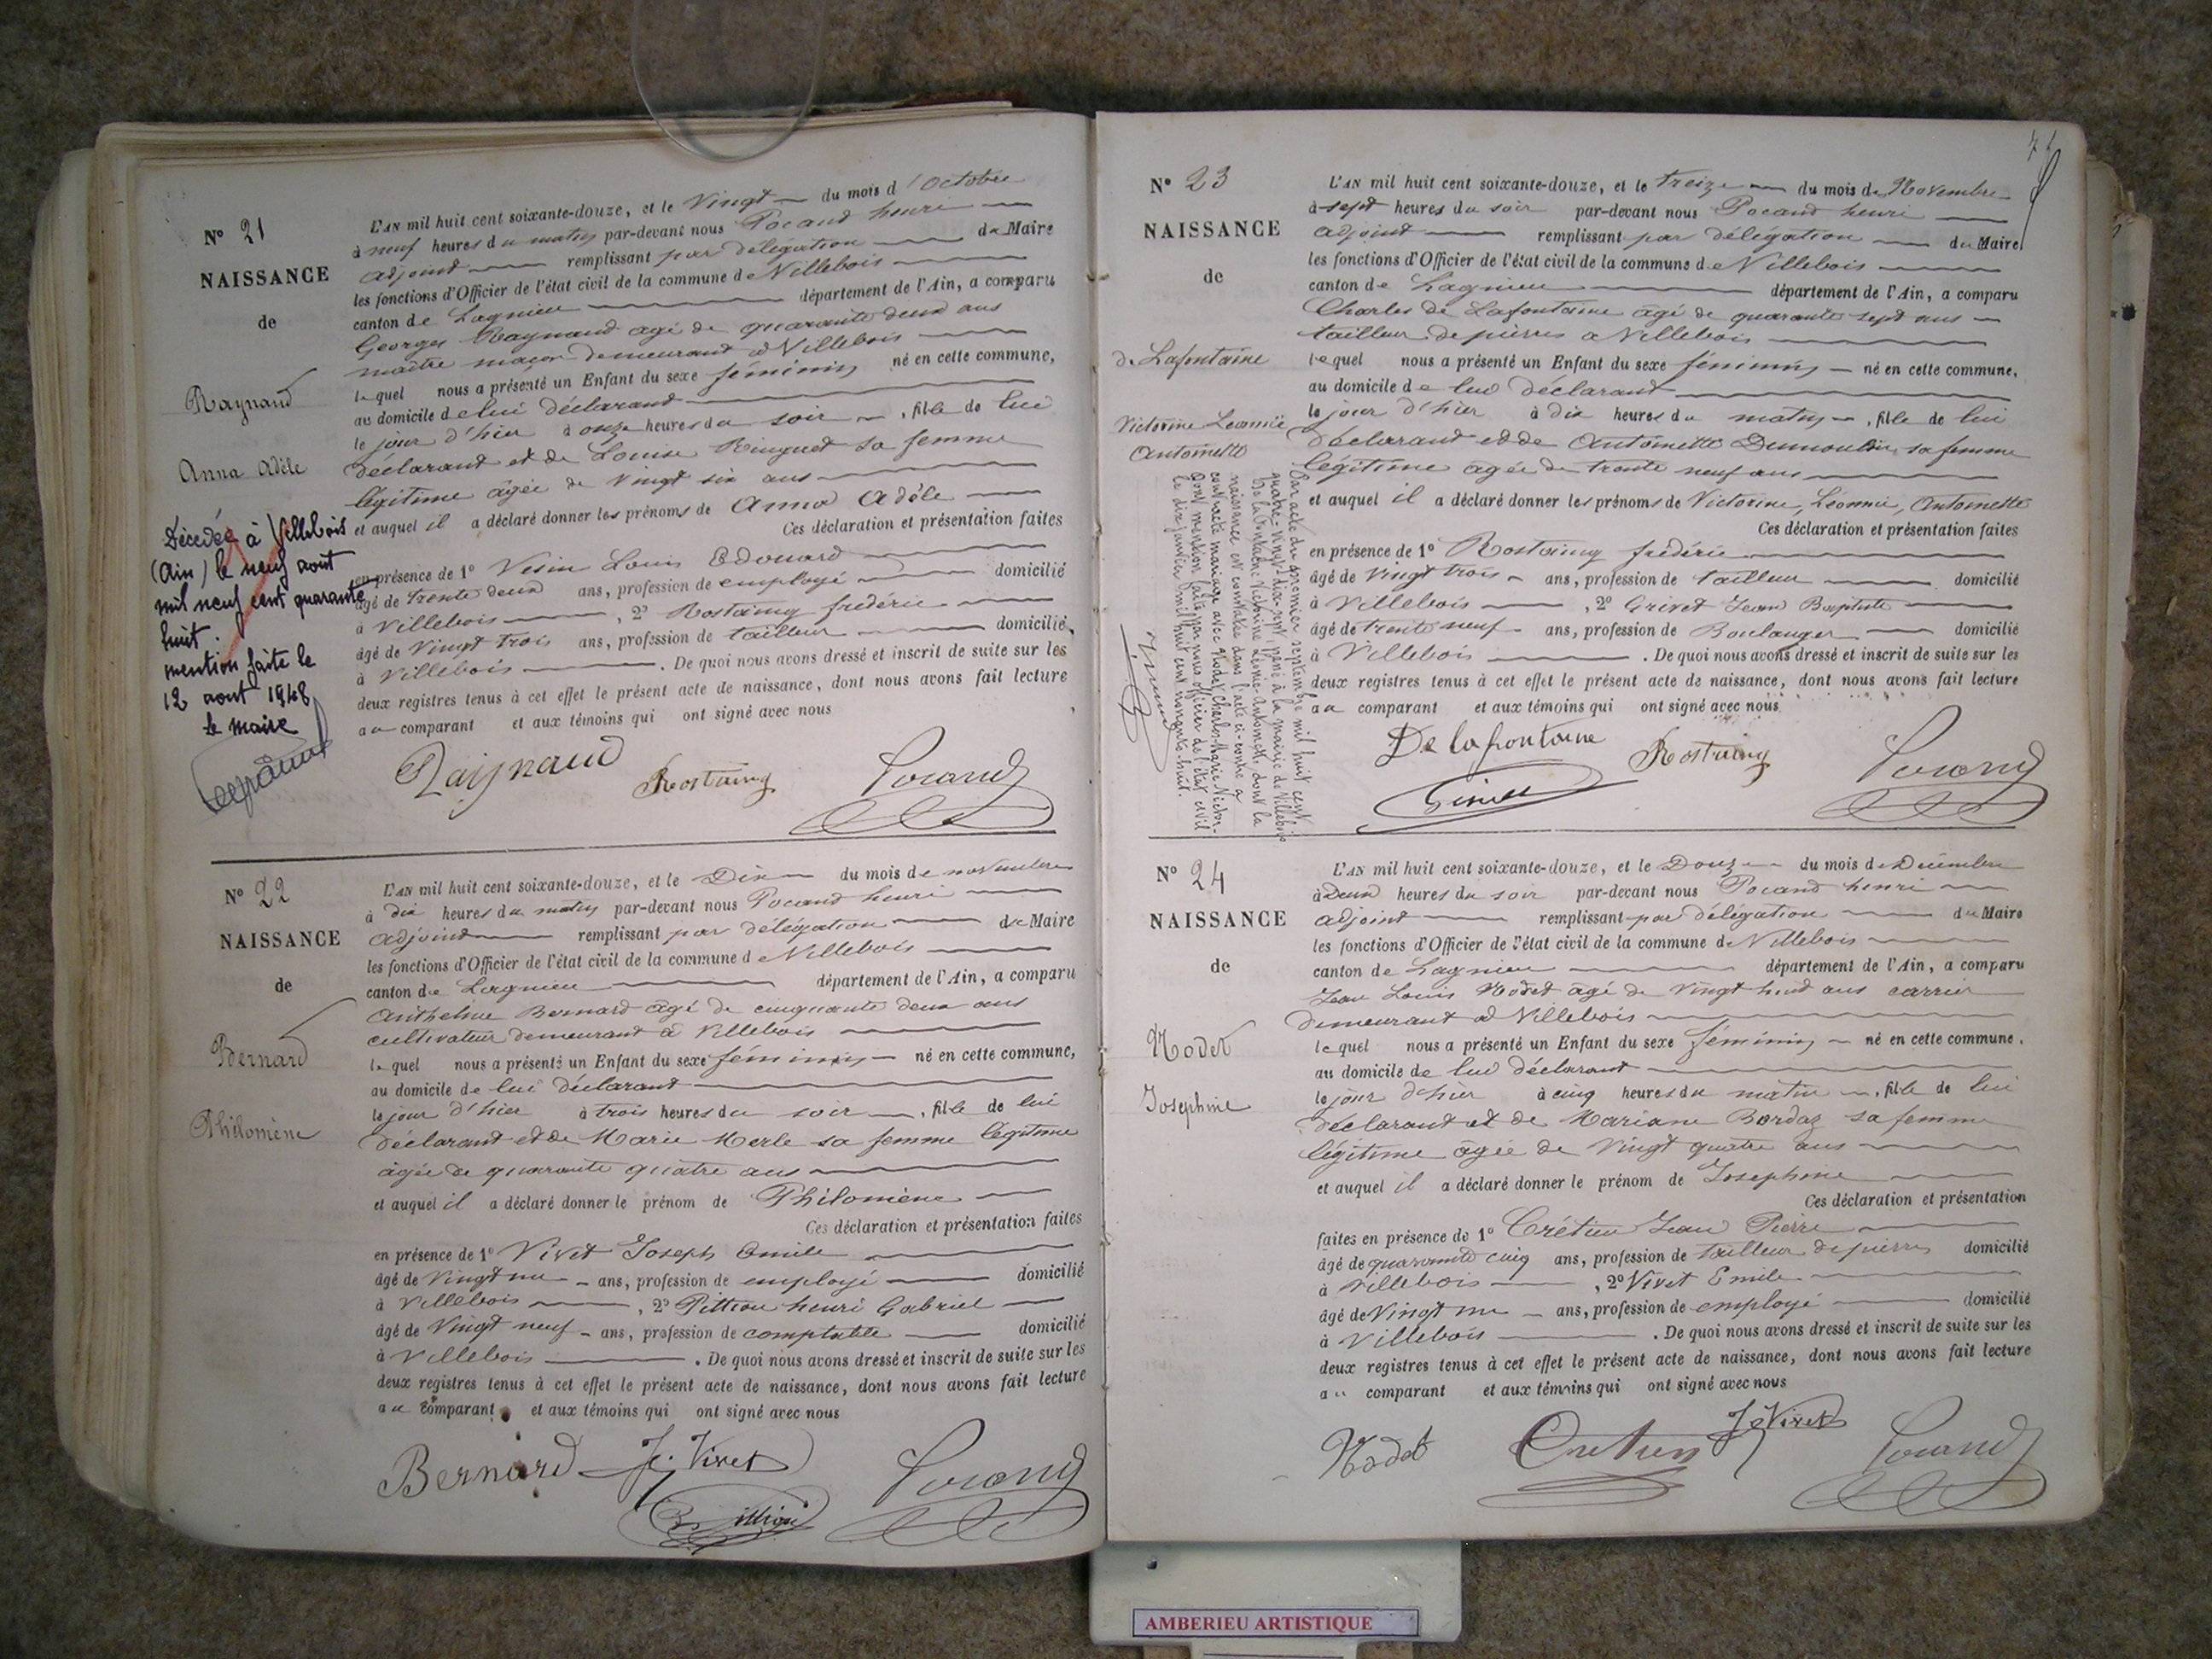 N° 21
NAISSANCE
de
Raynaud
Anna Adèle
Décédée à Villebois
(Ain) le neuf aout
mil neuf cent quarante
huit.
mention faite le
12 aout 1948
le maire
L'AN mil huit cent soixante-douze, et le Vingt du mois d'Octobre
à neuf heures du matin par-devant nous Pocand henri
adjoint remplissant par délégation du Maire
les fonctions d'Officier de l'état civil de la commune de Villebois
canton de Lagnieu département de l'Ain, a comparu
Georges Raynaud agé de quarante deux ans
maître maçon demeurant à Villebois
lequel nous a présenté un Enfant du sexe féminin né en cette commune,
au domicile de lui déclarant
le jour d'hier à onze heures du soir, fille de lui
déclarant et de Louise Ringuet sa femme
légitime âgée de vingt six ans
et auquel il a déclaré donner les prénoms de Anna Adèle
Ces déclaration et présentation faites
en présence de 1° Vesin Louis Edouard
âgé de trente deux ans, profession de employé domicilié
à Villebois, 2° Rostaing frédéric
âgé de Vingt trois ans, profession de tailleur domicilié
à Villebois. De quoi nous avons dressé et inscrit de suite sur les
deux registres tenus à cet effet le présent acte de naissance, dont nous avons fait lecture
au comparant et aux témoins qui ont signé avec nous
Raynaud Rostaing Pocand
N° 22
NAISSANCE
de
Bernard
Philomène
L'AN mil huit cent soixante-douze, et le Dix du mois de novembre
à dix heures du matin par-devant nous Pocand henri
adjoint remplissant par délégation du Maire
les fonctions d'Officier de l'état civil de la commune de Villebois
canton de Lagnieu département de l'Ain, a comparu
Anthelme Bernard âgé de cinquante deux ans
cultivateur demeurant à Villebois
lequel nous a présenté un Enfant du sexe féminin né en cette commune,
au domicile de lui déclarant
le jour d'hier à trois heures du soir, fille de lui
déclarant et de Marie Merle sa femme légitime
âgée de quarante quatre ans
et auquel il a déclaré donner le prénom de Philomène
Ces déclaration et présentation faites
en présence de 1° Vivet Joseph Emile
âgé de Vingt un ans, profession de employé domicilié
à Villebois, 2° Pittion henri Gabriel
âgé de Vingt neuf ans, profession de comptable domicilié
à Villebois. De quoi nous avons dressé et inscrit de suite sur les
deux registres tenus à cet effet le présent acte de naissance, dont nous avons fait lecture
au comparant et aux témoins qui ont signé avec nous
Bernard J. Vivet Pocand
Pittion
71
N° 23
NAISSANCE
de
de Lafontaine
Victorine Léonnie
Antoinette
Par acte du premier septembre mil huit cent
quatre-vingt-dix-sept, passé à la mairie de Villebois
De la Fontaine Victorine Léonie Antoinette, dont la
naissance est constatée dans l'acte ci-contre a
contracté mariage avec Charles-Marie
Dont mention faite par nous officier de l'état civil
le dix janvier mil huit cent nonante-huit.
L'AN mil huit cent soixante-douze, et le treize du mois de Novembre
à sept heures du soir par-devant nous Pocand henri
adjoint remplissant par délégation du Maire
les fonctions d'Officier de l'état civil de la commune de Villebois
canton de Lagnieu département de l'Ain, a comparu
Charles de Lafontaine âgé de quarante sept ans
tailleur de pierres à Villebois
lequel nous a présenté un Enfant du sexe féminin né en cette commune,
au domicile de lui déclarant
le jour d'hier à dix heures du matin, fille de lui
déclarant et de Antoinette Dumoulin sa femme
légitime âgée de trente neuf ans
et auquel il a déclaré donner les prénoms de Victorine, Léonnie, Antoinette
Ces déclaration et présentation faites
en présence de 1° Rostaing frédéric
âgé de vingt trois ans, profession de tailleur domicilié
à Villebois, 2° Grivet Jean Baptiste
âgé de trente neuf ans, profession de Boulanger domicilié
à Villebois. De quoi nous avons dressé et inscrit de suite sur les
deux registres tenus à cet effet le présent acte de naissance, dont nous avons fait lecture
au comparant et aux témoins qui ont signé avec nous
De lafontaine Rostaing Pocand
N° 24
NAISSANCE
de
Nodet
Josephine
L'AN mil huit cent soixante-douze, et le Douze du mois de Décembre
à Deux heures du soir par-devant nous Pocand henri
adjoint remplissant par délégation du Maire
les fonctions d'Officier de l'état civil de la commune de Villebois
canton de Lagnieu département de l'Ain, a comparu
Jean Louis Nodet âgé de vingt huit ans carrier
demeurant à Villebois
lequel nous a présenté un Enfant du sexe féminin né en cette commune.
au domicile de lui déclarant
le jour d'hier à cinq heures du matin, fille de lui
déclarant et de Mariane Bordaz sa femme
légitime âgée de Vingt quatre ans
et auquel il a déclaré donner le prénom de Josephine
Ces déclaration et présentation
faites en présence de 1° Crétien Jean Pierre
âgé de quarante cinq ans, profession de tailleur de pierres domicilié
à Villebois, 2° Vivet Emile
âgé de Vingt un ans, profession de employé domicilié
à Villebois. De quoi nous avons dressé et inscrit de suite sur les
deux registres tenus à cet effet le présent acte de naissance, dont nous avons fait lecture
au comparant et aux témoins qui ont signé avec nous
Nodet Cretien J. Vivet Pocand
AMBERIEU ARTISTIQUE